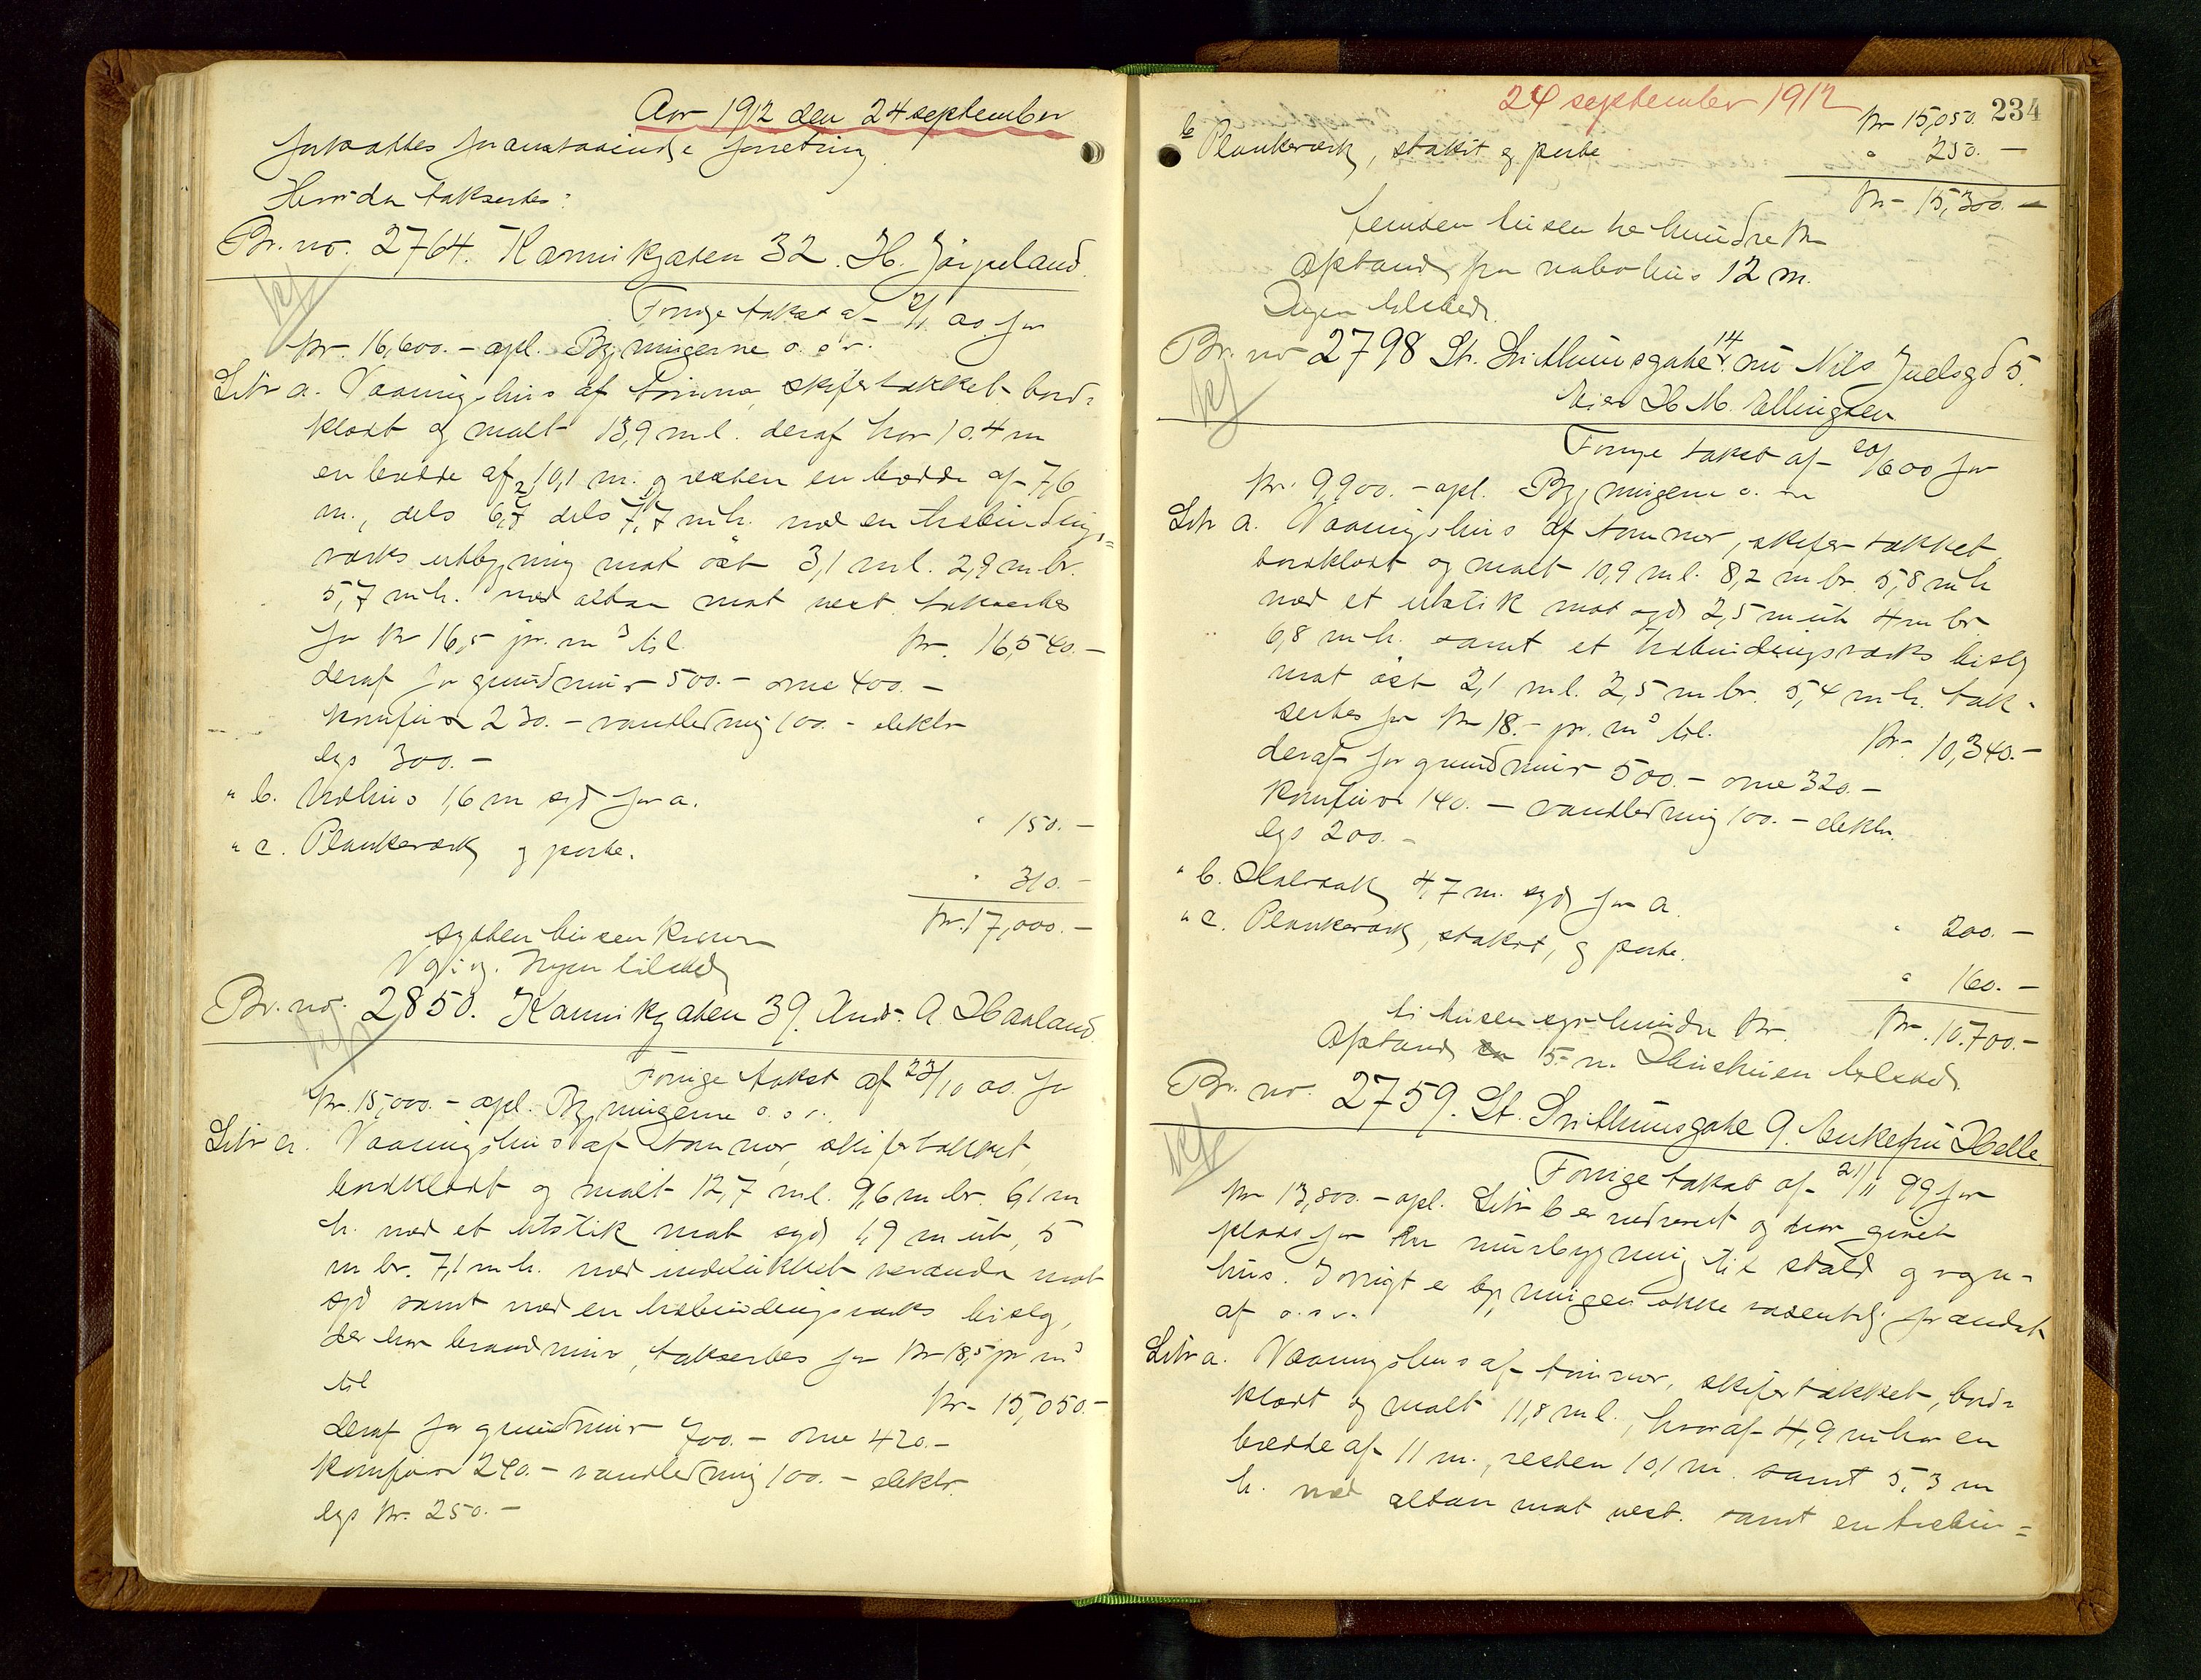 Aar 1912 den 24 september
fortsattes foranstaaende forretning.
Herpaa taksertes:
Br. no. 2764. Kannikgaten 32. H. Jörpeland.
Forrige takst af 2/11 00 for
kr. 16,600.- opl. Bygningerne o. s. v.
Litr a. Vaaningshus af tömmer, skifertækket bord-
klædt og malt 13,9 m l. deraf har 10.4 m
en bredde af 10,1 m. og resten en bredde af 7,6
m., dels 6,7 dels 7,7 m h. med en træbindings=
verks utbygning mot öst 3,1 m l. 2,9 m br.
5,7 m h. med altan mot vest. taksertes
for kr 16,5 pr. m³ til kr. 16,540.-
deraf for grundmur 500.- ovne 400.-
komfürer 230.- vandledning 100.- elektr
lys 300.-
" b. Uthus 1,6 m syd for a. " 150.-
" c. Plankeverk og porte. " 310.-
kr. 17,000.-
sytten tusen kroner
Ingen tilstede
Br. no. 2850. Kannikgaten 39. And. A. Haaland.
Forrige takst af 23/10 00. for
kr. 15,000.- opl. Bygningerne o. s. v.
Litr a. Vaaningshus af tömmer, skifertækket,
bordklædt og malt 12,7 m l. 9,6 m br. 6,1 m
h. med et utstik mot syd 1,9 m ut, 5
m br. 7,1 m h. med indelukket veranda mot
syd samt med en træbindingsverks bislag,
der har brandmur, taksertes for kr 18,5 pr m³
til kr. 15,050.-
deraf for grundmur 700.- ovne 420.-
komfürer 240.- vandledning 100.- elektr.
lys kr. 250.-
24 september 1912
234
kr 15,050.
b Plankeverk, stakit og porte " 250.-
kr. 15,300.-
femten tusen tre hundre kr
Afstand fra nabohus 12 m.
Ingen tilstede.
Br. no 2798 St. Svithunsgate 14 nu Nils Juelsgd 5.
Eier H. M. Ellingsen
Forrige takst af 20/6 00 for
kr. 9,900.- opl. Bygningerne o. s. v.
Litr a. Vaaningshus af tömmer, skifertækket,
bordklædt og malt 10,9 m l. 8,2 m br. 5,8 m h
med et utstik mot syd 2,5 m ut 4 m br
6,8 m h. samt et træbindingsverks bislag
mot öst 2,1 m l. 2,5 m br. 5,4 m h. tak-
sertes for kr 18.- pr. m³ til. kr. 10,340.-
deraf for grundmur 500.- ovne 320.-
komfürer 140.- vandledning 100.- elektr.
lys 200.-
" b. 4,7 m. syd for a. " 200.-
" c. Plankeverk, stakit, og porte. " 160.-
ti tusen syv hundre kr. kr. 10.700.-
Afstand 5 m. Husfruen tilstede.
Br. no. 2759. St. Svithunsgate 9. Enkefru Helle.
Forrige takst af 2/11 99 for
kr 13,800.- opl. Litr b er nedrevet og har givet
plads for en murbygning til stald og vogn-
hus. Iövrigt er bygningen ikke væsentlig forandret
af o. s. v.
Litr a. Vaaningshus af tömmer, skifertækket, bord-
klædt og malt 11,8 m l., hvoraf 4,9 m har en
bredde af 11 m., resten 10,1 m. samt 5,3 m
h. med altan mot vest. samt en træbin=